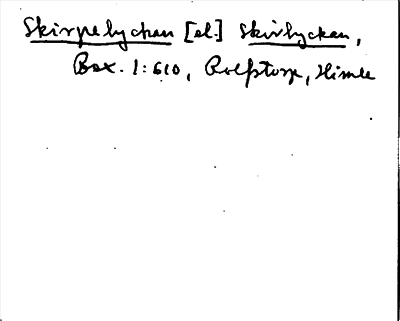 Skirpelyckan [el] Skirlyckan,
Box. 1:610, Rolfstorp, Himle